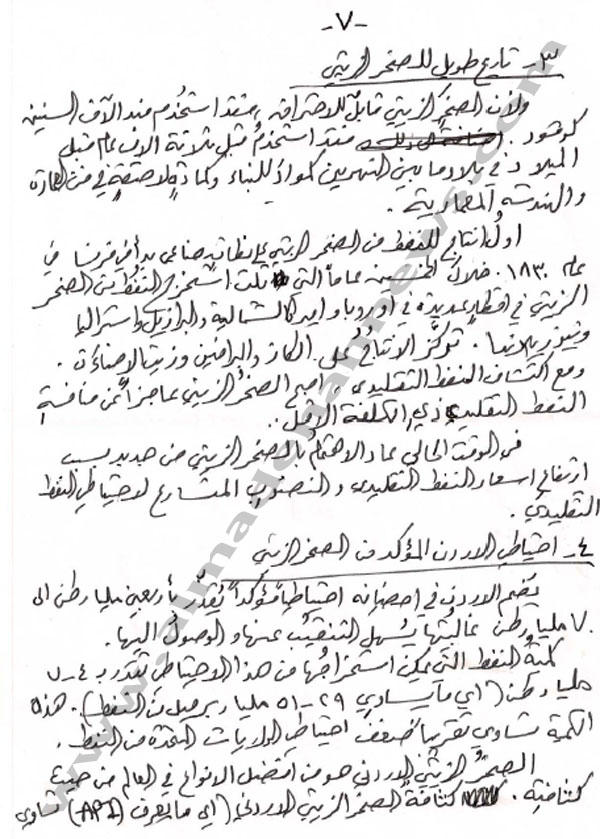 -٧-
٣- تاريخ طويل للصخر الزيتي
ولأن الصخر الزيتي قابل للاحتراق، فقد استخدم منذ الآف السنين
كوقود. فقد استخدم قبل ثلاثة الاف عام قبل
الميلاد في بلاد ما بين النهرين كمواد للبناء وكمادة لاصقة في فن العمارة
والهندسة المعمارية.
اول انتاج للنفط من الصخر الزيتي على نطاق صناعي بدأ في فرنسا في
عام ١٨٣٠. خلال الخمسين عاماً التي تلت استخرج النفط من الصخر
الزيتي في اقطار عديدة في اوروبا واميركا الشمالية والبرازيل واستراليا
ونيوزيلاندا. تركز الانتاج على الكاز والبرافين وزيت الاضاءة.
ومع اكتشاف النفط التقليدي اصبح الصخر الزيتي عاجزاً عن منافسة
النفط التقليدي ذي الكلفة الاقل.
في الوقت الحالي عاد الاهتمام بالصخر الزيتي من جديد بسبب
ارتفاع اسعار النفط التقليدي والنضوب المتسارع لاحتياطي النفط
التقليدي.
٤- احتياطي الاردن المؤكد من الصخر الزيتي
يضم الاردن في احضانه احتياطياً مؤكداً يُقدّر بأربعين مليار طن الى
٧٠ مليار طن غالبيتها يسهل التنقيب عنها والوصول اليها.
كمية النفط التي يمكن استخراجها من هذا الاحتياطي تقدر بـ ٤-٧
مليار طن (اي ما يساوي ٢٩-٥١ مليار برميل من النفط). هذه
الكمية تساوي تقريباً ضعف احتياطي الولايات المتحدة من النفط.
الصخر الزيتي الاردني هو من افضل الانواع في العالم من حيث
كثافته. كثافة الصخر الزيتي الاردني (اي ما يعرف API) تساوي
www.almadenahnews.com